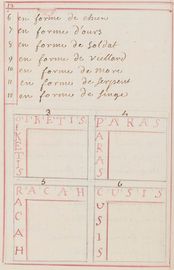 6 en forme de chien
7 en forme d'ours
8 en forme de soldat
9 en forme de veillard
10 en forme de more
11 en forme de serpent
en forme de singe
3
4
PARAS
PARAS
5
6
RACAH
RACAH
CUSIS
CUSIS